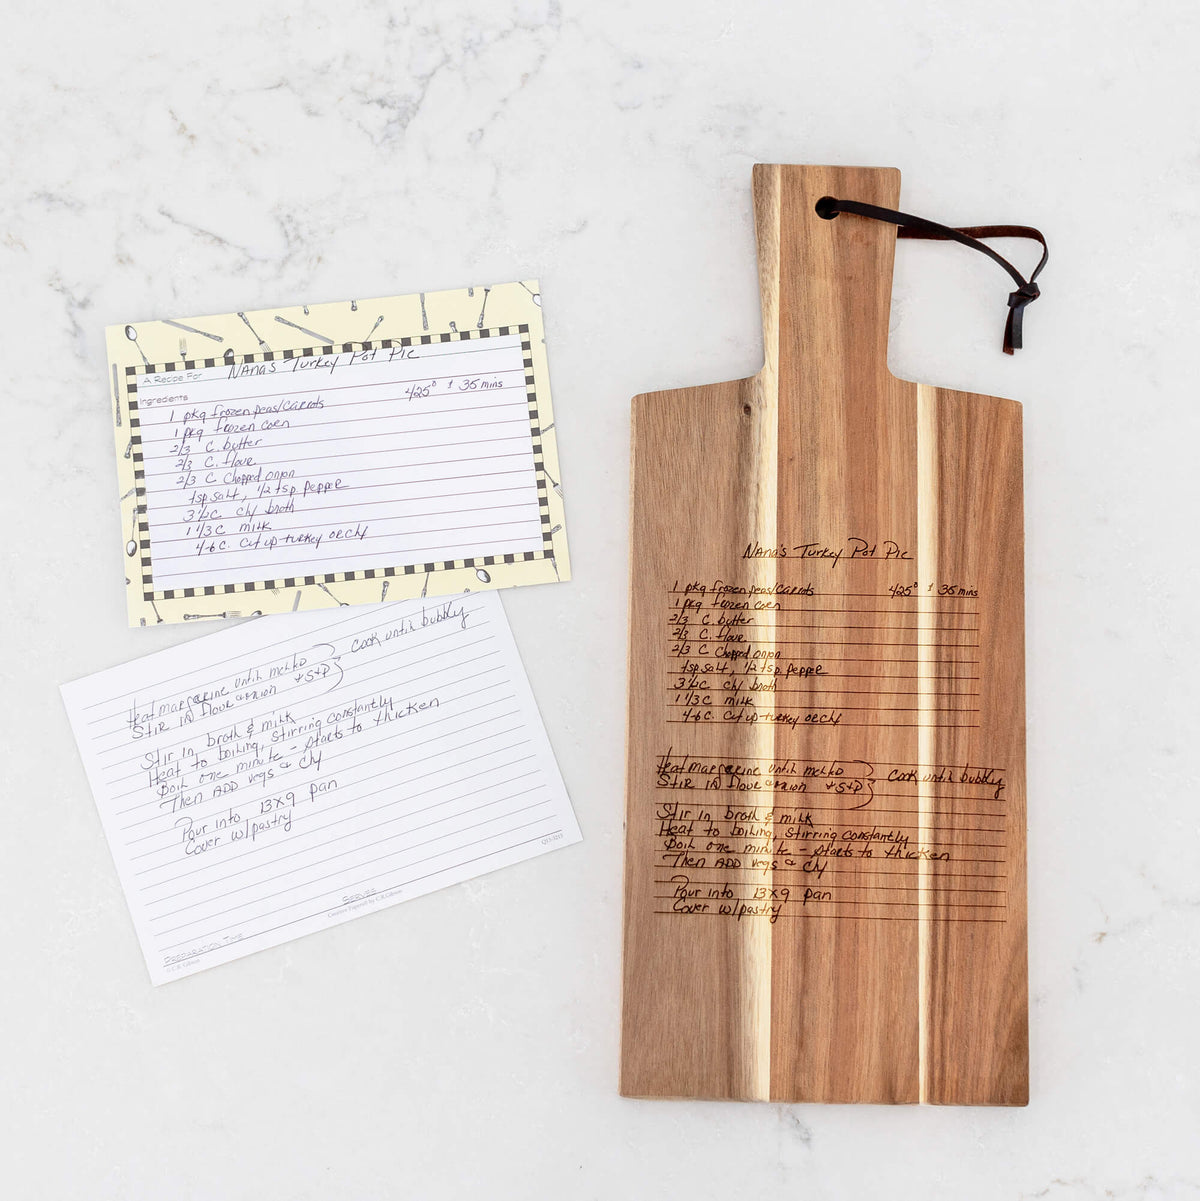 A Recipe For Nana's Turkey Pot Pie
Ingredients 425° ± 35 mins
1 pkg frozen peas/carrots
1 pkg frozen corn
2/3 C. butter
2/3 C. flour
2/3 C Chopped onion
tsp salt, 1/2 tsp. pepper
3 1/2 C ch/ broth
1 1/3 C milk
4-6 C. Cut up turkey or ch/
Heat margarine until melted
Stir in flour & onion + S+P } Cook until bubbly
Stir in broth & milk
Heat to boiling, stirring constantly
Boil one minute - starts to thicken
Then ADD vegs & ch/
Pour into 13x9 pan
Cover w/pastry
Q13-3213
SERVES
Creative Papers by C.R.Gibson
PREPARATION TIME
© C.R. Gibson
Nana's Turkey Pot Pie
1 pkg frozen peas/carrots 425° ± 35 mins
1 pkg frozen corn
2/3 C. butter
2/3 C. flour
2/3 C Chopped onion
tsp salt, 1/2 tsp. pepper
3 1/2 C ch/ broth
1 1/3 C milk
4-6 C. Cut up turkey or ch/
Heat margarine until melted
Stir in flour & onion + S+P } Cook until bubbly
Stir in broth & milk
Heat to boiling, stirring constantly
Boil one minute - starts to thicken
Then ADD vegs & ch/
Pour into 13x9 pan
Cover w/pastry